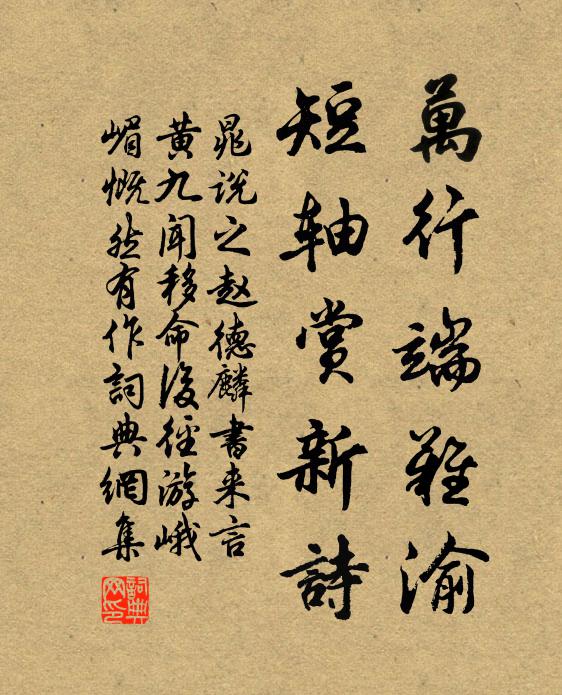 萬行端難渝
短轴賞新詩
晁说之赵德麟書来言
黄九闻移命後径游峨
嵋慨然有作詞典網集
詞典网印